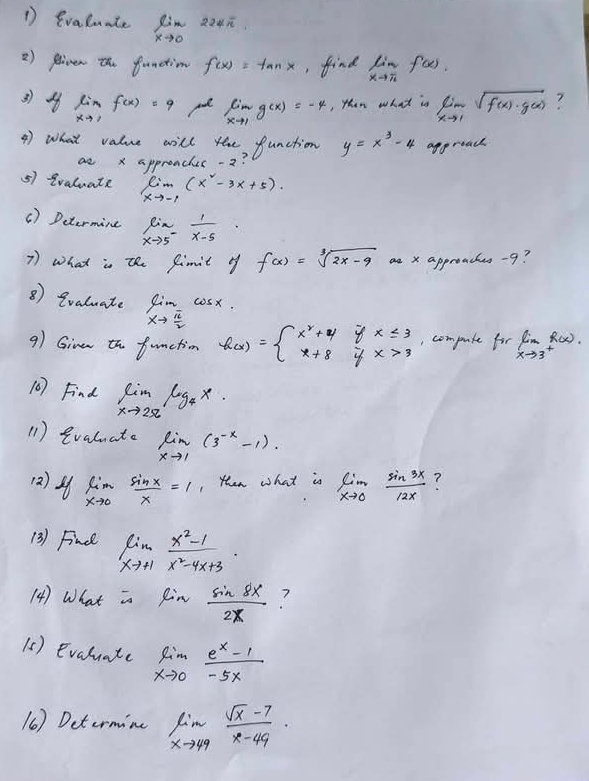 1) Evaluate lim x→0 224π.
2) Given the function f(x) = tan x, find lim x→π f(x).
3) If lim x→1 f(x) = 9 and lim x→1 g(x) = -4, then what is lim x→1 √f(x)·g(x) ?
4) What value will the function y = x³ - 4 approach
as x approaches -2?
5) Evaluate lim x→-1 (x² - 3x + 5).
6) Determine lim x→5⁻ 1/(x-5).
7) What is the limit of f(x) = ∛2x-9 as x approaches -9?
8) Evaluate lim x→π/2 cos x.
9) Given the function h(x) = { x² + 4 if x ≤ 3, x + 8 if x > 3, compute for lim x→3⁺ h(x).
10) Find lim log₄ x.
11) Evaluate lim x→1 (3⁻ˣ - 1).
12) If lim x→0 sin x/x = 1, then what is lim x→0 sin 3x/12x ?
13) Find lim x→+1 (x²-1)/(x²-4x+3).
14) What is lim sin 8x/2x ?
15) Evaluate lim x→0 (eˣ - 1)/-5x
16) Determine lim x→49 (√x - 7)/(x-49).